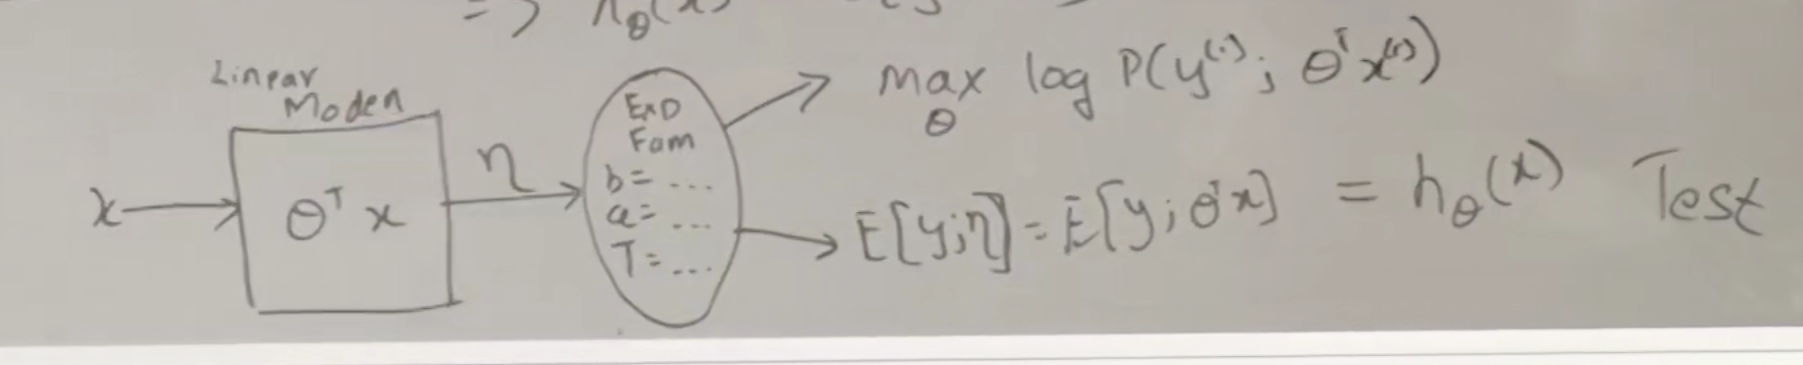 => hθ(x)
Linear
Model
x
θᵀ x
η
Exp
Fam
b= ...
a= ...
T= ...
max log P(y⁽ⁱ⁾; θᵀx⁽ⁱ⁾)
θ
E[y;η] = E[y; θᵀx] = hθ(x) Test